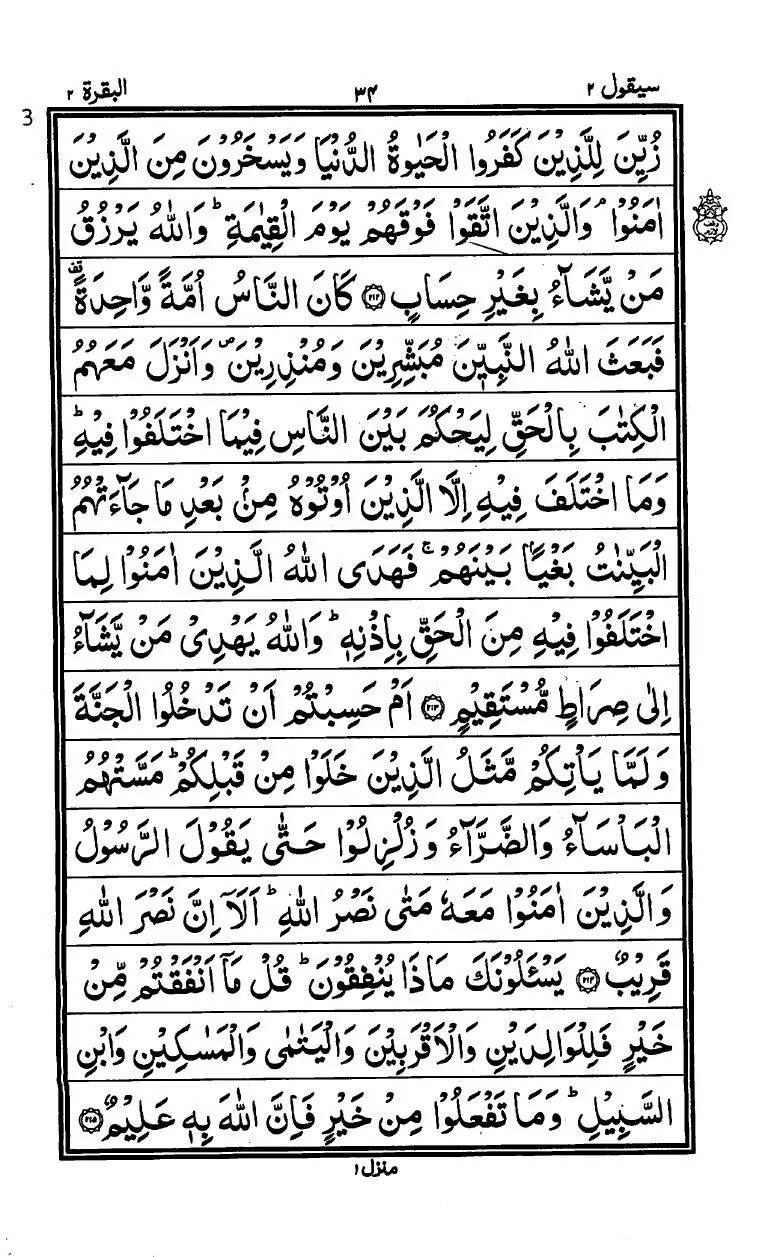 سيقول ٢
٣٤
البقرة ٢
3
زُيِّنَ لِلَّذِيْنَ كَفَرُوا الْحَيٰوةُ الدُّنْيَا وَيَسْخَرُوْنَ مِنَ الَّذِيْنَ
اٰمَنُوْا ۘ وَالَّذِيْنَ اتَّقَوْا فَوْقَهُمْ يَوْمَ الْقِيٰمَةِ ؕ وَاللّٰهُ يَرْزُقُ
مَنْ يَّشَآءُ بِغَيْرِ حِسَابٍ ﴿٢١٢﴾ كَانَ النَّاسُ اُمَّةً وَّاحِدَةً
فَبَعَثَ اللّٰهُ النَّبِيّٖنَ مُبَشِّرِيْنَ وَمُنْذِرِيْنَ ۪ وَاَنْزَلَ مَعَهُمُ
الْكِتٰبَ بِالْحَقِّ لِيَحْكُمَ بَيْنَ النَّاسِ فِيْمَا اخْتَلَفُوْا فِيْهِ ؕ
وَمَا اخْتَلَفَ فِيْهِ اِلَّا الَّذِيْنَ اُوْتُوْهُ مِنْۢ بَعْدِ مَا جَآءَتْهُمُ
الْبَيِّنٰتُ بَغْيًۢا بَيْنَهُمْ ۚ فَهَدَى اللّٰهُ الَّذِيْنَ اٰمَنُوْا لِمَا
اخْتَلَفُوْا فِيْهِ مِنَ الْحَقِّ بِاِذْنِهٖ ؕ وَاللّٰهُ يَهْدِيْ مَنْ يَّشَآءُ
اِلٰى صِرَاطٍ مُّسْتَقِيْمٍ ﴿٢١٣﴾ اَمْ حَسِبْتُمْ اَنْ تَدْخُلُوا الْجَنَّةَ
وَلَمَّا يَاْتِكُمْ مَّثَلُ الَّذِيْنَ خَلَوْا مِنْ قَبْلِكُمْ ؕ مَسَّتْهُمُ
الْبَاْسَآءُ وَالضَّرَّآءُ وَزُلْزِلُوْا حَتّٰى يَقُوْلَ الرَّسُوْلُ
وَالَّذِيْنَ اٰمَنُوْا مَعَهٗ مَتٰى نَصْرُ اللّٰهِ ؕ اَلَاۤ اِنَّ نَصْرَ اللّٰهِ
قَرِيْبٌ ﴿٢١٤﴾ يَسْـَٔلُوْنَكَ مَاذَا يُنْفِقُوْنَ ؕ قُلْ مَاۤ اَنْفَقْتُمْ مِّنْ
خَيْرٍ فَلِلْوَالِدَيْنِ وَالْاَقْرَبِيْنَ وَالْيَتٰمٰى وَالْمَسٰكِيْنِ وَابْنِ
السَّبِيْلِ ؕ وَمَا تَفْعَلُوْا مِنْ خَيْرٍ فَاِنَّ اللّٰهَ بِهٖ عَلِيْمٌ ﴿٢١٥﴾
منزل ١